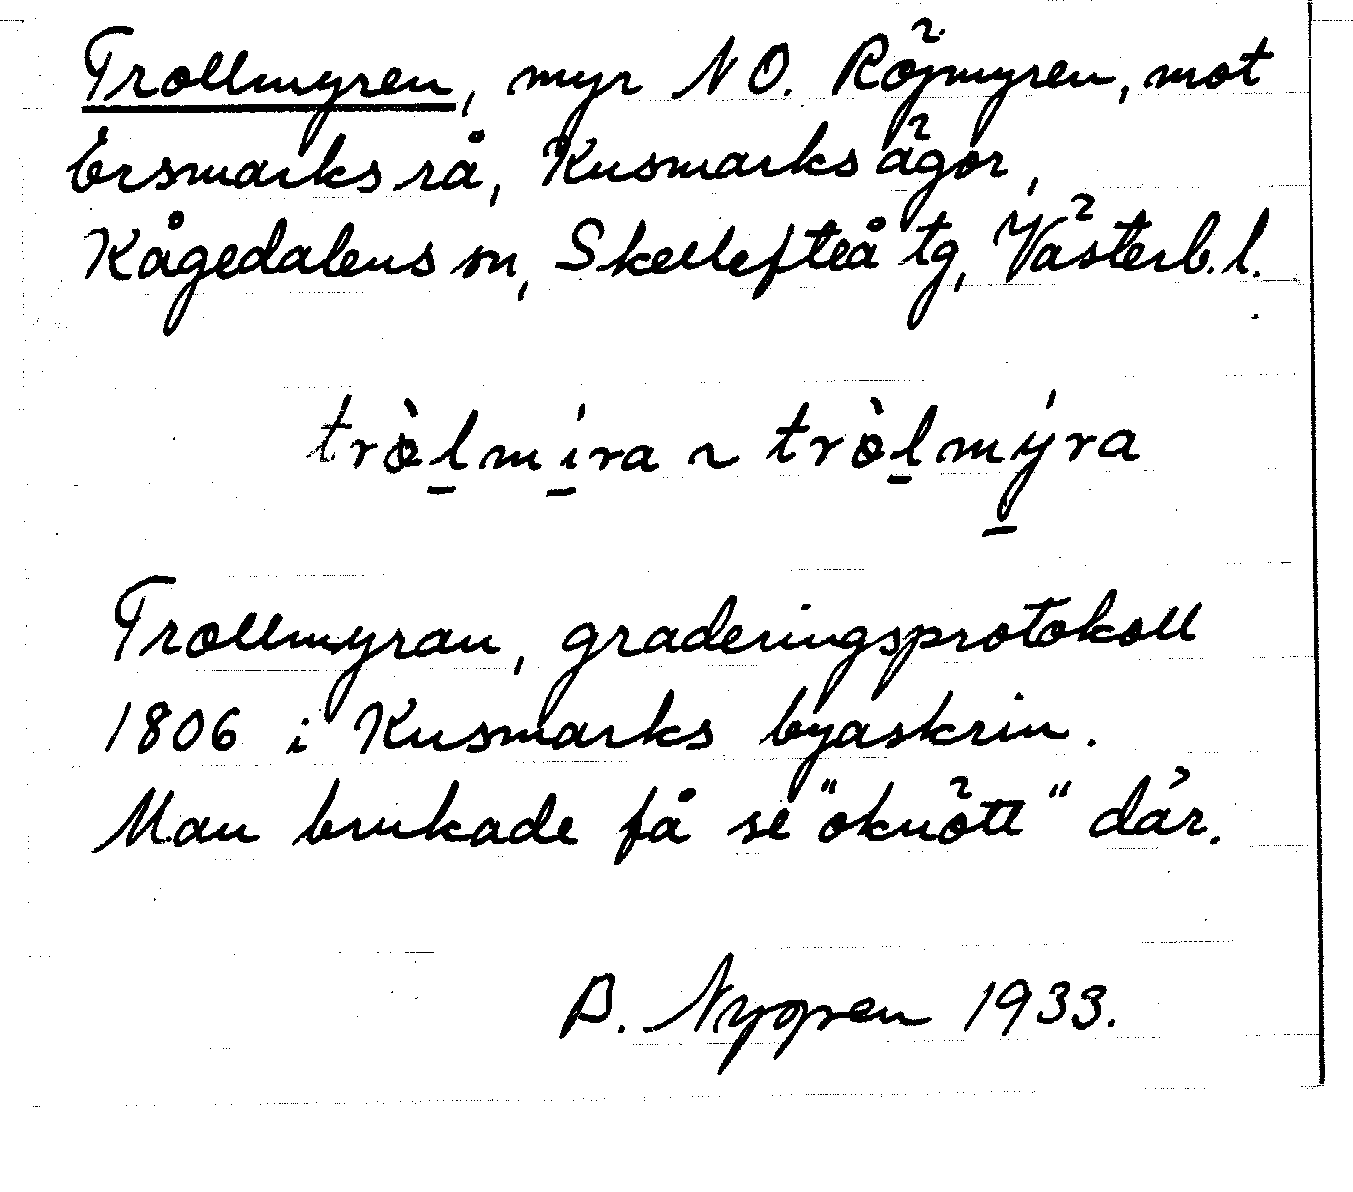 Trollmyren, myr NO. Röjmyren, mot
Ersmarks rå, Kusmarks ägor,
Kågedalens sn, Skellefteå tg, Västerb. l.
trò̱lmí̱ra ~ trò̱lmý̱ra
Trollmyran, graderingsprotokoll
1806 i Kusmarks byaskrin.
Man brukade få se "oknött" där.
B. Nygren 1933.